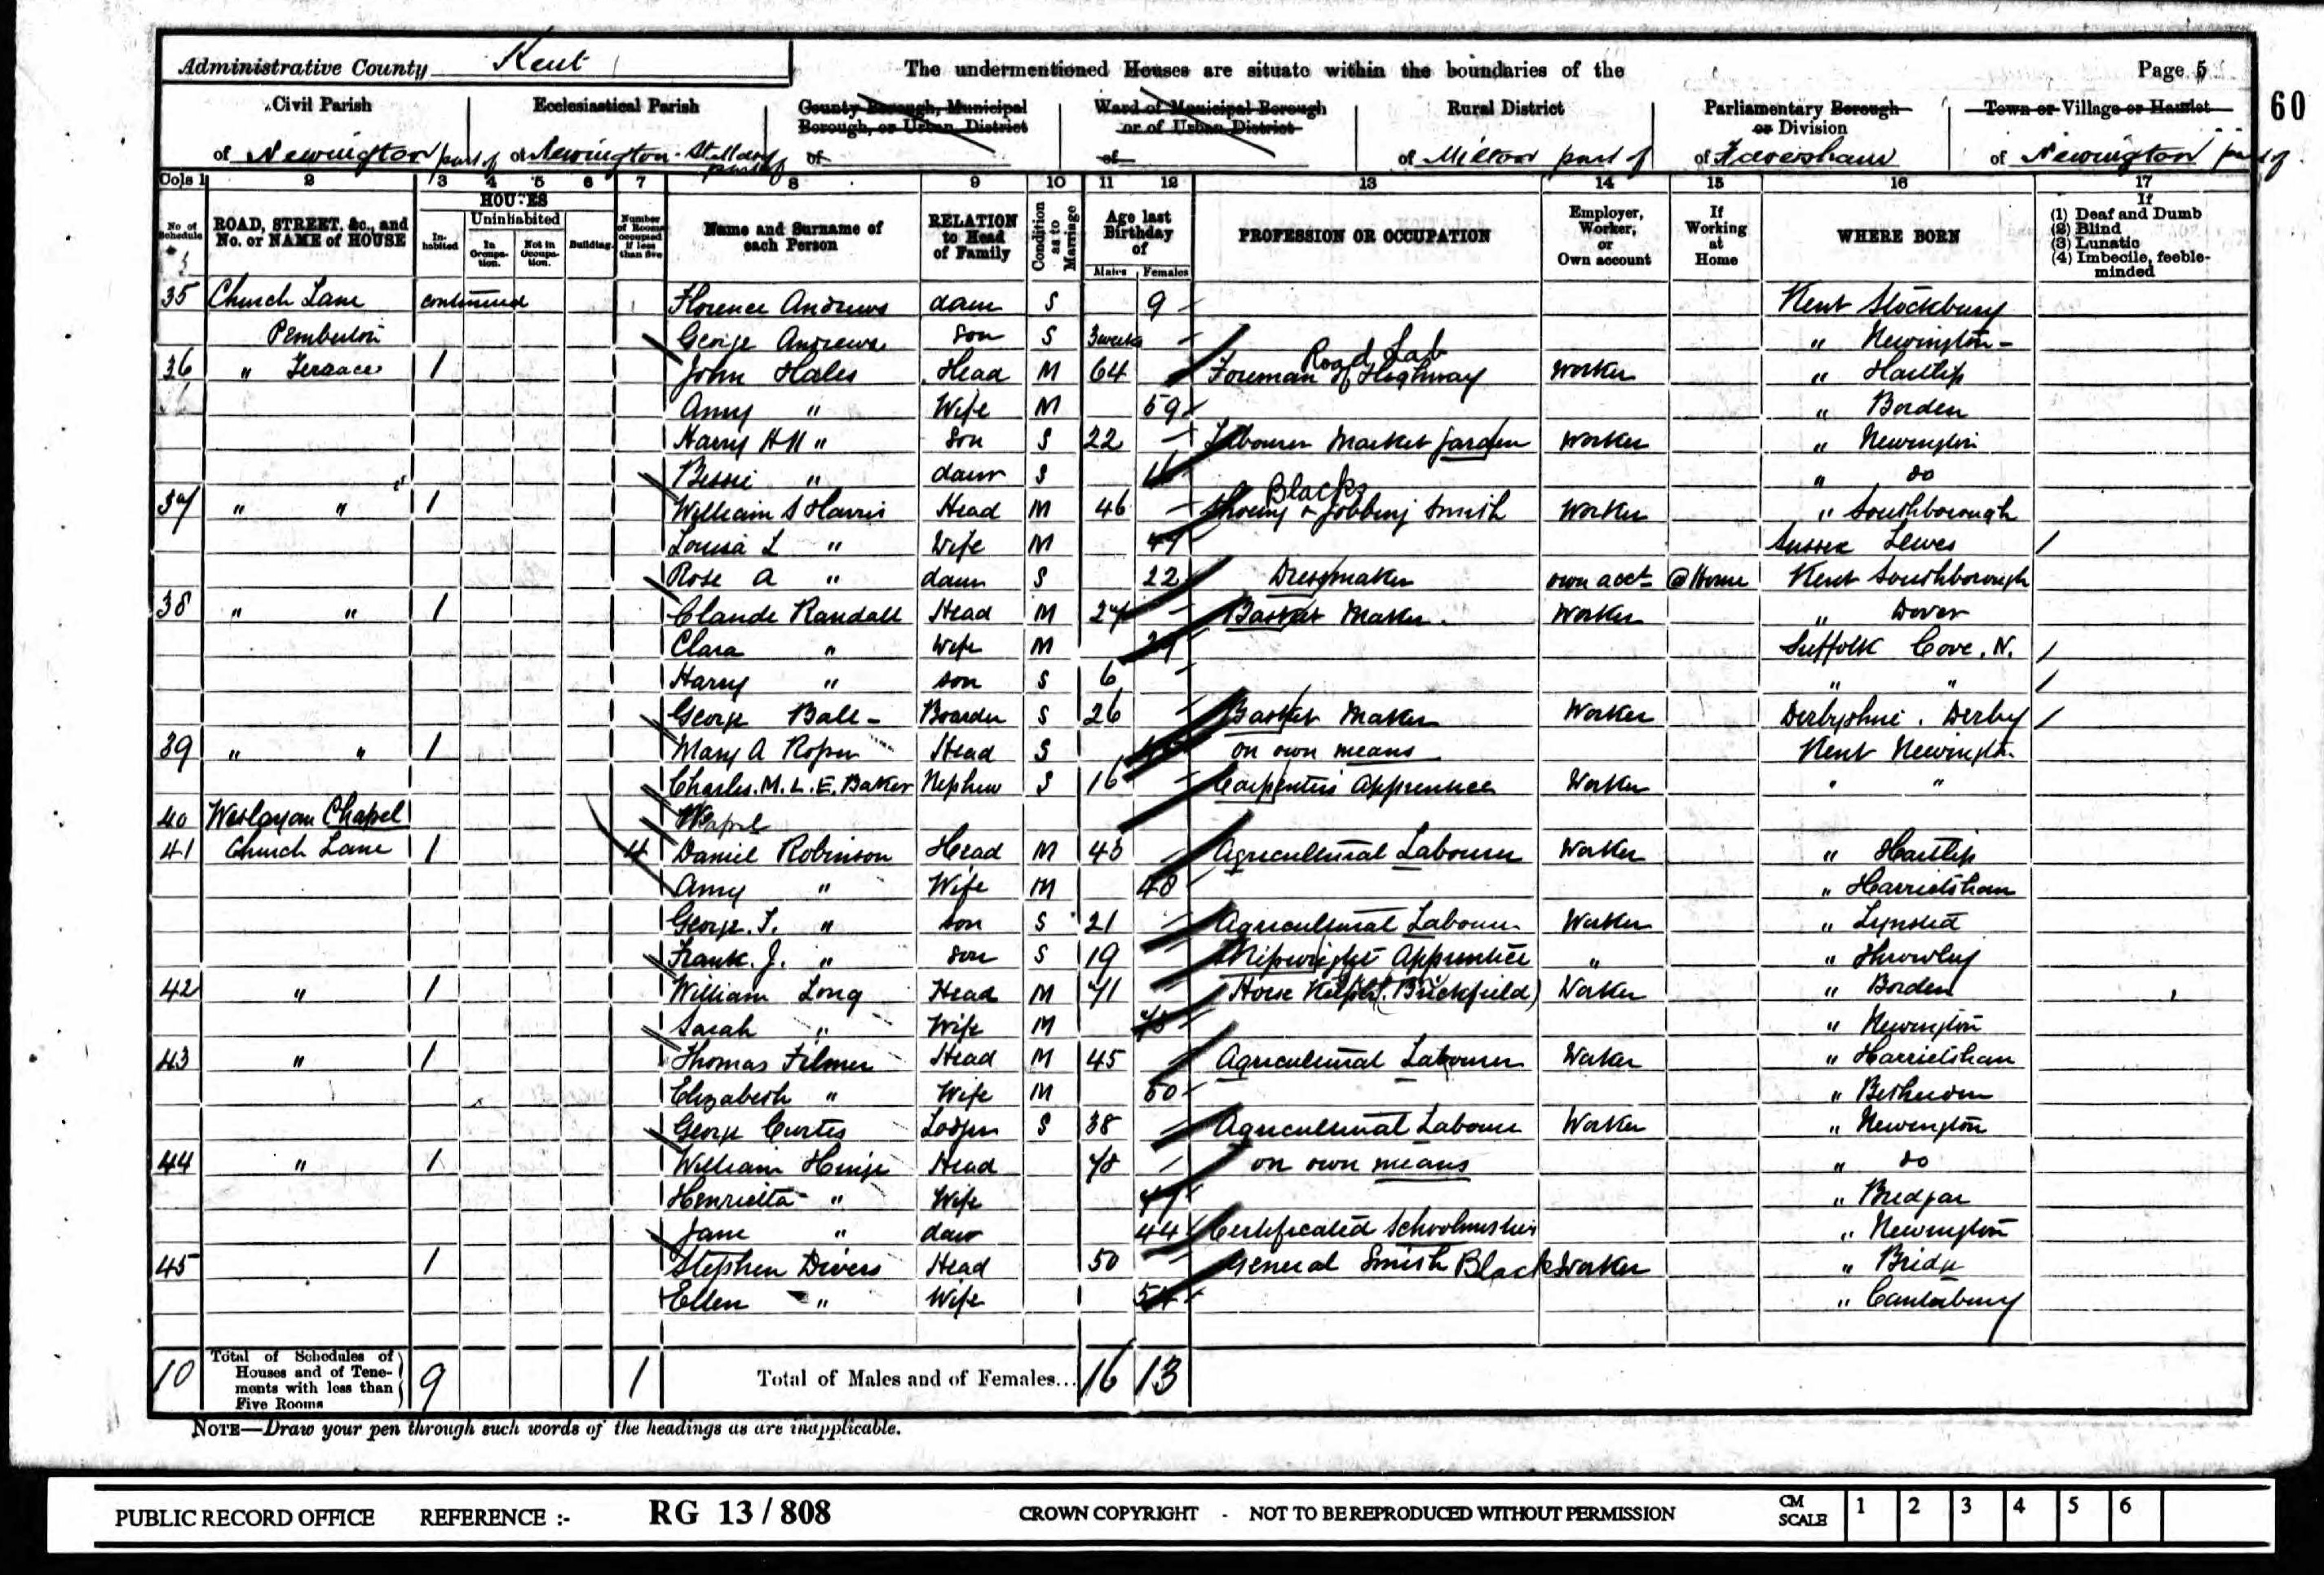 Administrative County Kent
The undermentioned Houses are situate within the boundaries of the
Page 5
60
Civil Parish
Ecclesiastical Parish
County Borough, Municipal Borough, or Urban District
Ward of Municipal Borough or of Urban District
Rural District
Parliamentary Borough or Division
Town or Village or Hamlet
of Newington part of
of Newington part of
of
of
of Milton part of
of Faversham
of Newington part of
Cols 1 2 3 4 5 6 7 8 9 10 11 12 13 14 15 16 17
No of Schedule
ROAD, STREET, &c., and No. or NAME of HOUSE
HOUSES
Inhabited
Uninhabited
In Occupation.
Not in Occupation.
Building
Number of Rooms occupied if less than five
Name and Surname of each Person
RELATION to Head of Family
Condition as to Marriage
Age last Birthday of
Males Females
PROFESSION OR OCCUPATION
Employer, Worker, or Own account
If Working at Home
WHERE BORN
If
(1) Deaf and Dumb
(2) Blind
(3) Lunatic
(4) Imbecile, feeble-minded
35 Church Lane continued Florence Andrews daur S 9 Kent Stockbury
Pemberton George Andrews son S 3 weeks " Newington
36 " Terrace 1 John Hales Head M 64 Foreman of Highway Road Lab Worker " Hartlip
Amy " Wife M 59 " Borden
Harry H " son S 22 Labourer Market Garden Worker " Newington
Bessie " daur S 16 " do
37 " " 1 William S Harris Head M 46 Shoeing & Jobbing Smith Blacks Worker " Southborough
Louisa L " Wife M 47 Sussex Lewes
Rose A " daur S 22 Dressmaker own acct @ Home Kent Southborough
38 " " 1 Claude Randall Head M 27 Basket Maker Worker " Dover
Clara " Wife M Suffolk Cove. N.
Harry " son S 6 " "
George Ball Boarder S 26 Basket Maker Worker Derbyshire. Derby
39 " " 1 Mary A Roper Head S on own means Kent Newington
Charles. M. L. E. Baker Nephew S 16 Carpenters Apprentice Worker " "
40 Wesleyan Chapel
41 Church Lane 1 4 Daniel Robinson Head M 43 Agricultural Labourer Worker " Hartlip
Amy " Wife M 48 " Harrietsham
George. T. " son S 21 Agricultural Labourer Worker " Lynsted
Frank. J. " son S 19 Shipwright Apprentice " " Throwley
42 " 1 William Long Head M 71 Horse Keeper (Brickfield) Worker " Borden
Sarah " Wife M " Newington
43 " 1 Thomas Filmer Head M 45 Agricultural Labourer Worker " Harrietsham
Elizabeth " Wife M 50 " Bethersden
George Curtis Lodger S 38 Agricultural Labourer Worker " Newington
44 " 1 William Head 78 on own means " do
Henrietta " Wife 77 " Bredgar
Jane " daur 44 Certificated Schoolmistress " Newington
45 1 Stephen Divers Head 50 General Smith Black Worker " Bridge
Ellen " Wife 54 " Canterbury
10 Total of Schedules of Houses and of Tenements with less than Five Rooms 9 1 Total of Males and of Females... 16 13
NOTE—Draw your pen through such words of the headings as are inapplicable.
PUBLIC RECORD OFFICE REFERENCE :- RG 13 / 808 CROWN COPYRIGHT - NOT TO BE REPRODUCED WITHOUT PERMISSION CM SCALE 1 2 3 4 5 6